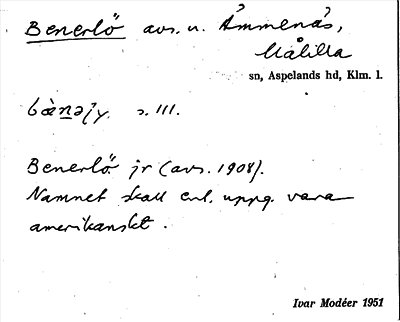 Benerlö avs. u. Åmmenäs,
Målilla
sn, Aspelands hd, Klm. l.
s. 111.
Benerlö jr (avs. 1908).
Namnet skall enl. uppg. vara
amerikanskt.
Ivar Modéer 1951